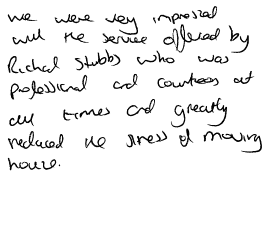 we were very impressed
with the service offered by
Richard Stubbs who was
professional and courteous at
all times and greatly
reduced the stress of moving
house.